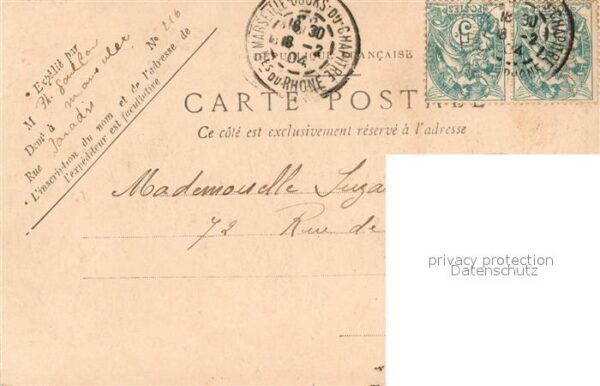 Expédié par
M
Demt à
Rue Paradis No 216
L'inscription du nom et de l'adresse de
l'expéditeur est facultative
MARSEILLE-COURS-DU-CHAPITRE
16 30
8 -2
04
BES DU RHONE
RÉPUBLIQUE FRANÇAISE
CARTE POSTALE
Ce côté est exclusivement réservé à l'adresse
Mademoiselle Suza
72 Rue de
privacy protection
Datenschutz